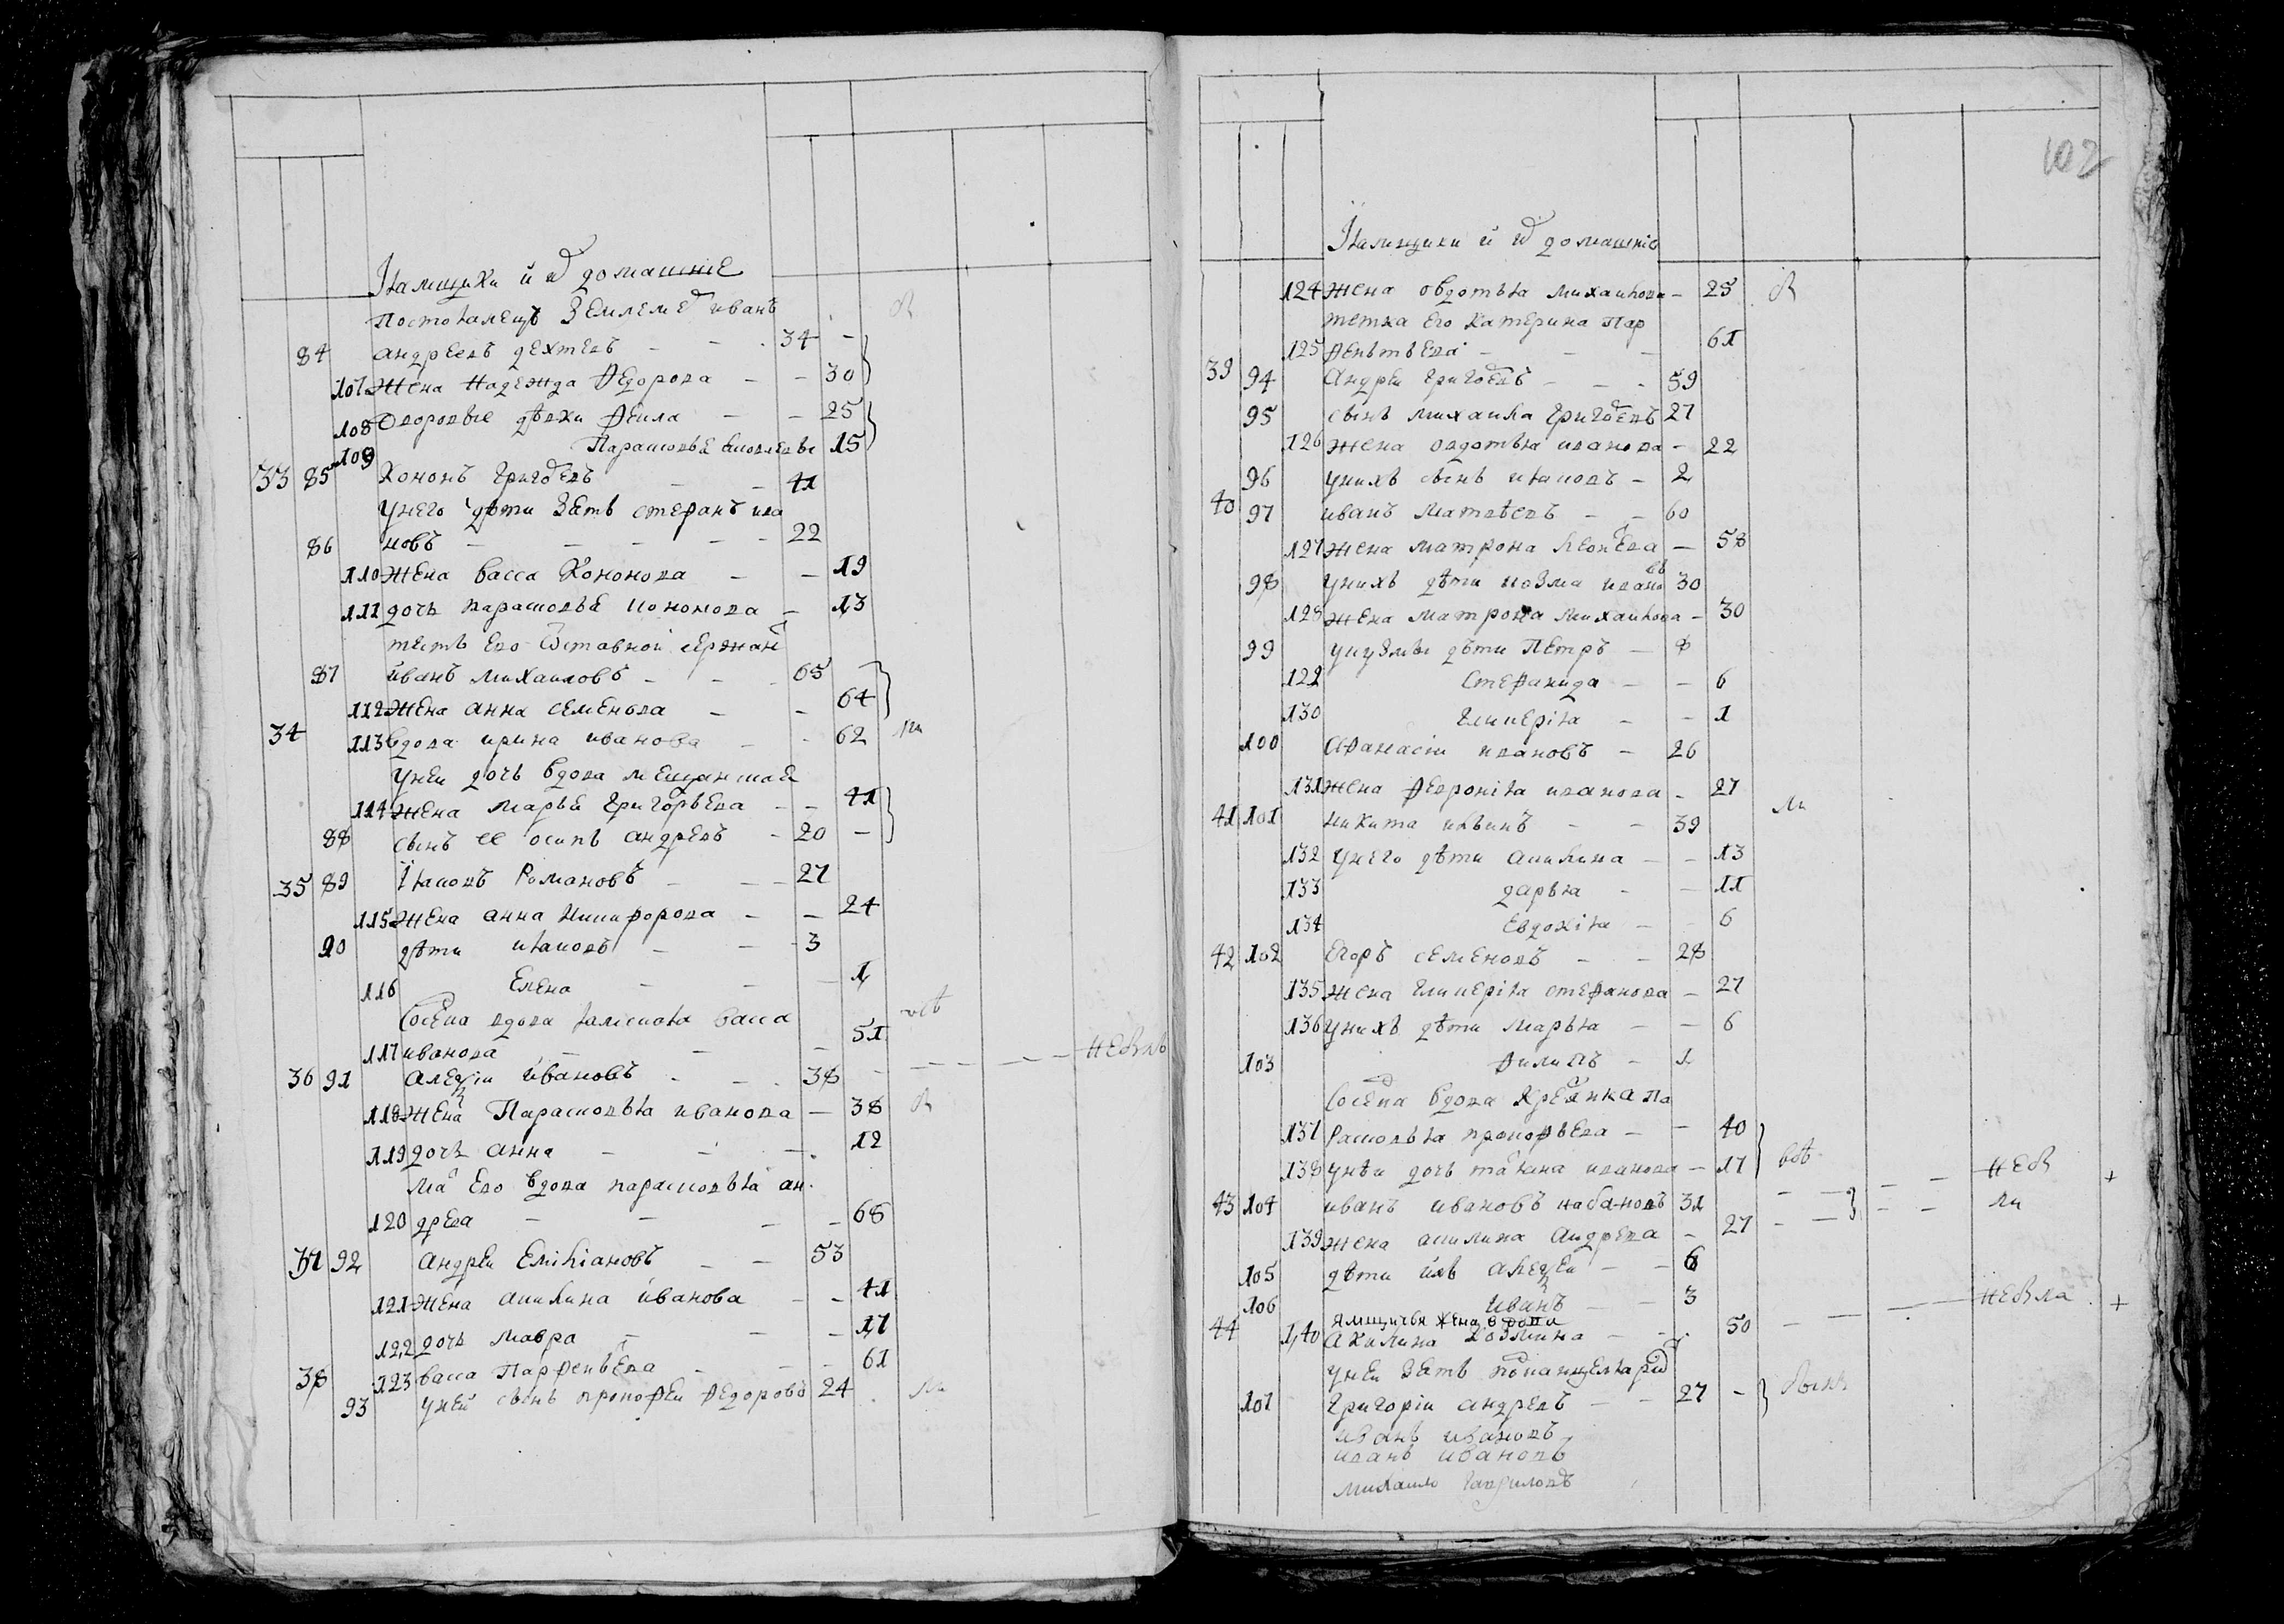 Ꙗмщики и ихъ домашние
постоꙗлецъ Землемеръ иванъ
84 андреевъ дехтевъ - - 34 -
107 жена надежда Ѳедорова - - 30
108 дворовые дѣвки Ѳекла - - 25
109 Парасковьꙗ 15
33 85 Кононъ Григорьевъ - - 41
унего дѣти Зать стефанъ ива
86 новъ - - - - - 22
110 жена васса Кононова - - 19
111 дочь парасковьꙗ кононова - 13
тесть ево отставной сержантъ
87 иванъ михаиловъ - - - 65
112 жена анна семенова - - 64
34 113 вдова ирина иванова - - 62 ли
унеи дочь вдова мещанскаꙗ
114 жена марьꙗ Григорьева - - 41
88 сынъ ее осипъ андреевъ - 20 -
35 89 Ꙗковъ Романовъ - - - 27
115 жена анна никифорова - - 24
90 дѣти ꙗковъ - - - 3
116 елена - - - 1
соседка вдова васса
117 иванова - - - 51
36 91 алеѯѣи ивановъ - - - 38 - - - -
118 жена Парасковьꙗ иванова - 38
119 дочь анна - - - 12
мать ево вдова парасковьꙗ ан
120 дреева - - - - 68
37 92 андреи Емилиановъ - - 53
121 жена акилина иванова - - 41
122 дочь мавра - - - 17
38 123 васса Парѳеньева - - - 61
93 унеи сынъ прокоѳеи Ѳедоровъ 24 ли
102
Ꙗмщики и ихъ домашние
124 жена овдотьꙗ михаилова - 25
тетка его катерина пар
125 ѳентьева - - - 61
39 94 андреи григорьевъ - - - 59
95 сынъ михаила григорьевъ 27
126 жена овдотьꙗ иванова - 22
96 унихъ сынъ ꙗковъ - 2
40 97 иванъ матвѣевъ - - 60
127 жена матрона - 58
98 унихъ дѣти козма ивановъ 30
128 жена матрона михаилова - 30
99 укузмы дѣти Петръ - 8
122 Стеѳанида - - 6
130 гликериꙗ - - 1
100 аѳанасіи ивановъ - 26
131 жена ѳеврониꙗ иванова - 27
41 101 никита ильинъ - - 39 ли
132 унего дѣти акилина - - 13
133 дарьꙗ - - 11
134 евдокиꙗ - - 6
42 102 егоръ семеновъ - - 28
135 жена гликериꙗ стеѳанова - 27
136 унихъ дѣти марьꙗ - - 6
103 ѳилипъ - 1
соседка вдова крестьянка па
137 расковьꙗ прокоѳьева - - 40
138 унѣи дочь татьꙗна иванова - 17
43 104 иванъ ивановъ кабановъ 31 ли
139 жена акилина андреева - 27
105 дѣти ихъ алеѯѣи - - 6
106 иванъ - - 3
ямщичья жена вдова
44 140 акилина козмина - - 50
унеи зать
107 григоріи андреевъ - - 27 -
иванъ ивановъ
иванъ ивановъ
михаило гавриловъ